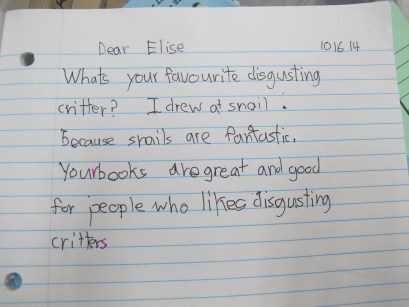 Dear Elise 10 16 14
Whats your favourite disgusting
critter? I drew at snail.
because snails are fantastic.
Yourbooks are great and good
for people who likes disgusting
critters